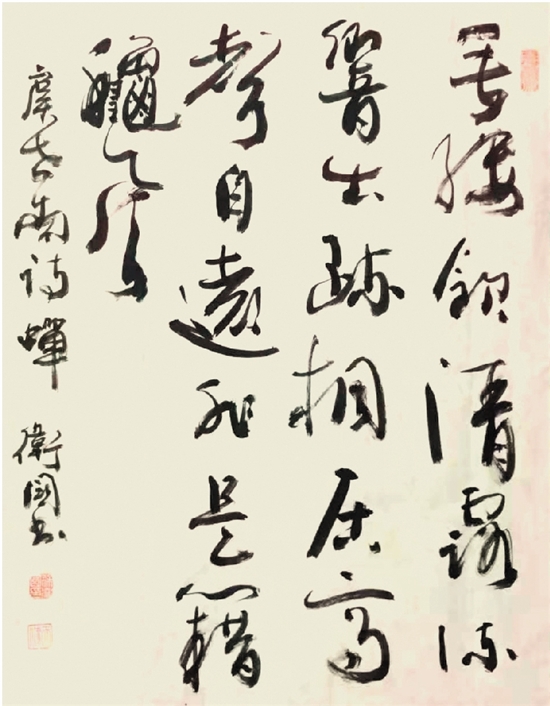 垂緌飲清露流
響出疎桐居高
聲自遠非是藉
龝風
虞世南詩蟬 衛國书